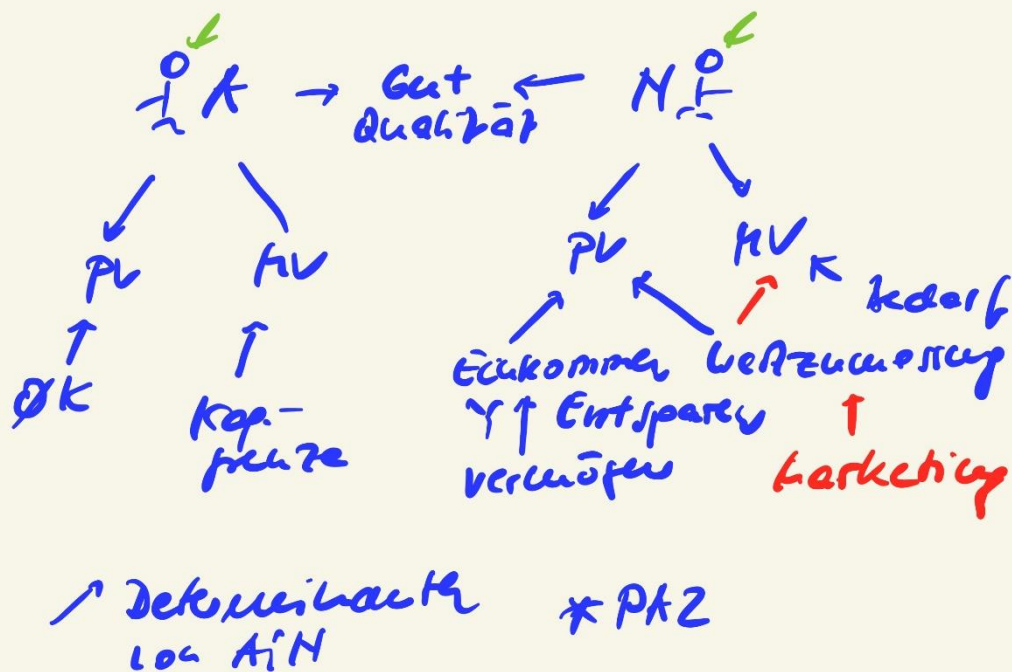 A → Gut ← N
Qualität
PV MV PV MV
Bedarf
ØK Kap.-
grenze
Einkommen Wertzumessung
Y ↑ Entsparen
Vermögen Marketing
↗ Determinanten * PAZ
von A;N